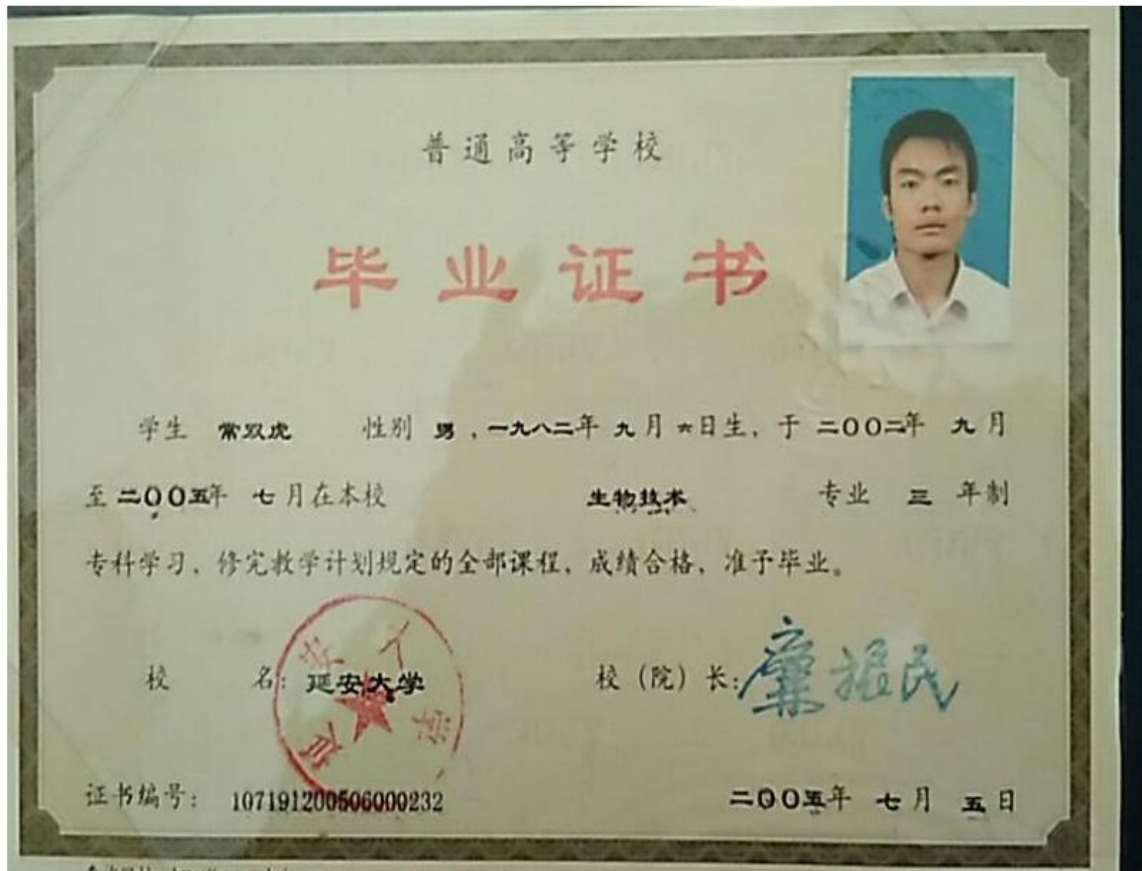 普通高等学校
毕业证书
学生 常双虎 性别 男，一九八二年 九月 六日生，于 二00二年 九月
至 二00五年 七月在本校 生物技术 专业 三 年制
专科学习，修完教学计划规定的全部课程，成绩合格，准予毕业。
校 名：延安大学 校（院）长：廉振民
证书编号：107191200506000232 二00五年 七月 五日